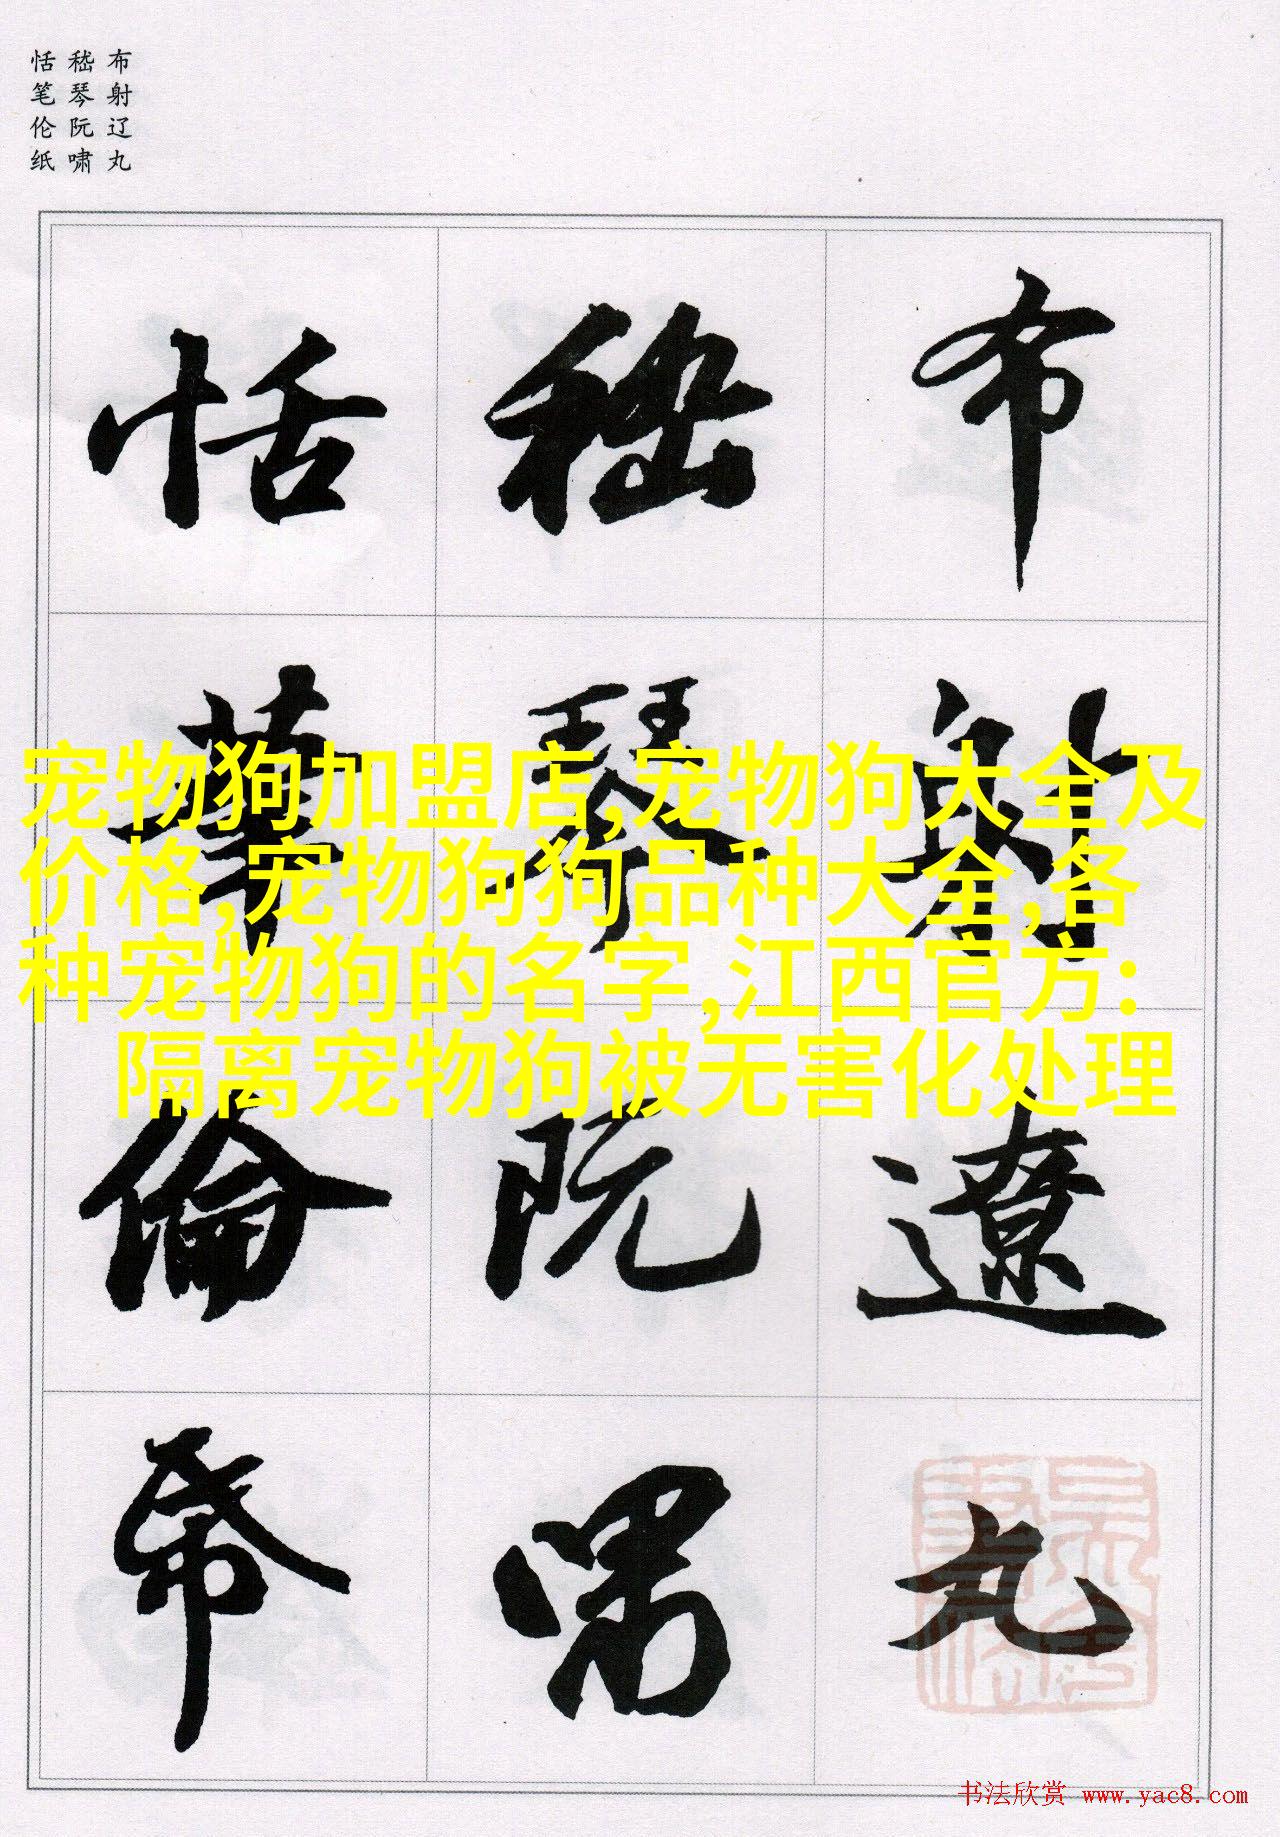 布射辽丸
嵇琴阮啸
恬笔伦纸
布射遼丸
嵇琴阮嘯
恬筆倫帋
宠物狗加盟店,宠物狗大全及
价格,宠物狗狗品种大全,各
种宠物狗的名字,江西官方:
隔离宠物狗被无害化处理
书法欣赏 www.yac8.com